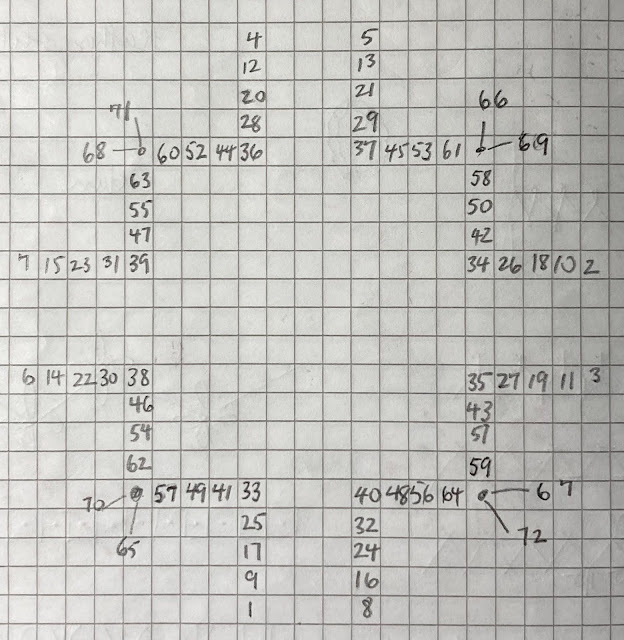 4 5
12 13
20 21
71 66
28 29
68 60 52 44 36 37 45 53 61 69
63 58
55 50
47 42
7 15 23 31 39 34 26 18 10 2
6 14 22 30 38 35 27 19 11 3
46 43
54 51
62 59
70 57 49 41 33 40 48 56 64 67
25 32
65 72
17 24
9 16
1 8